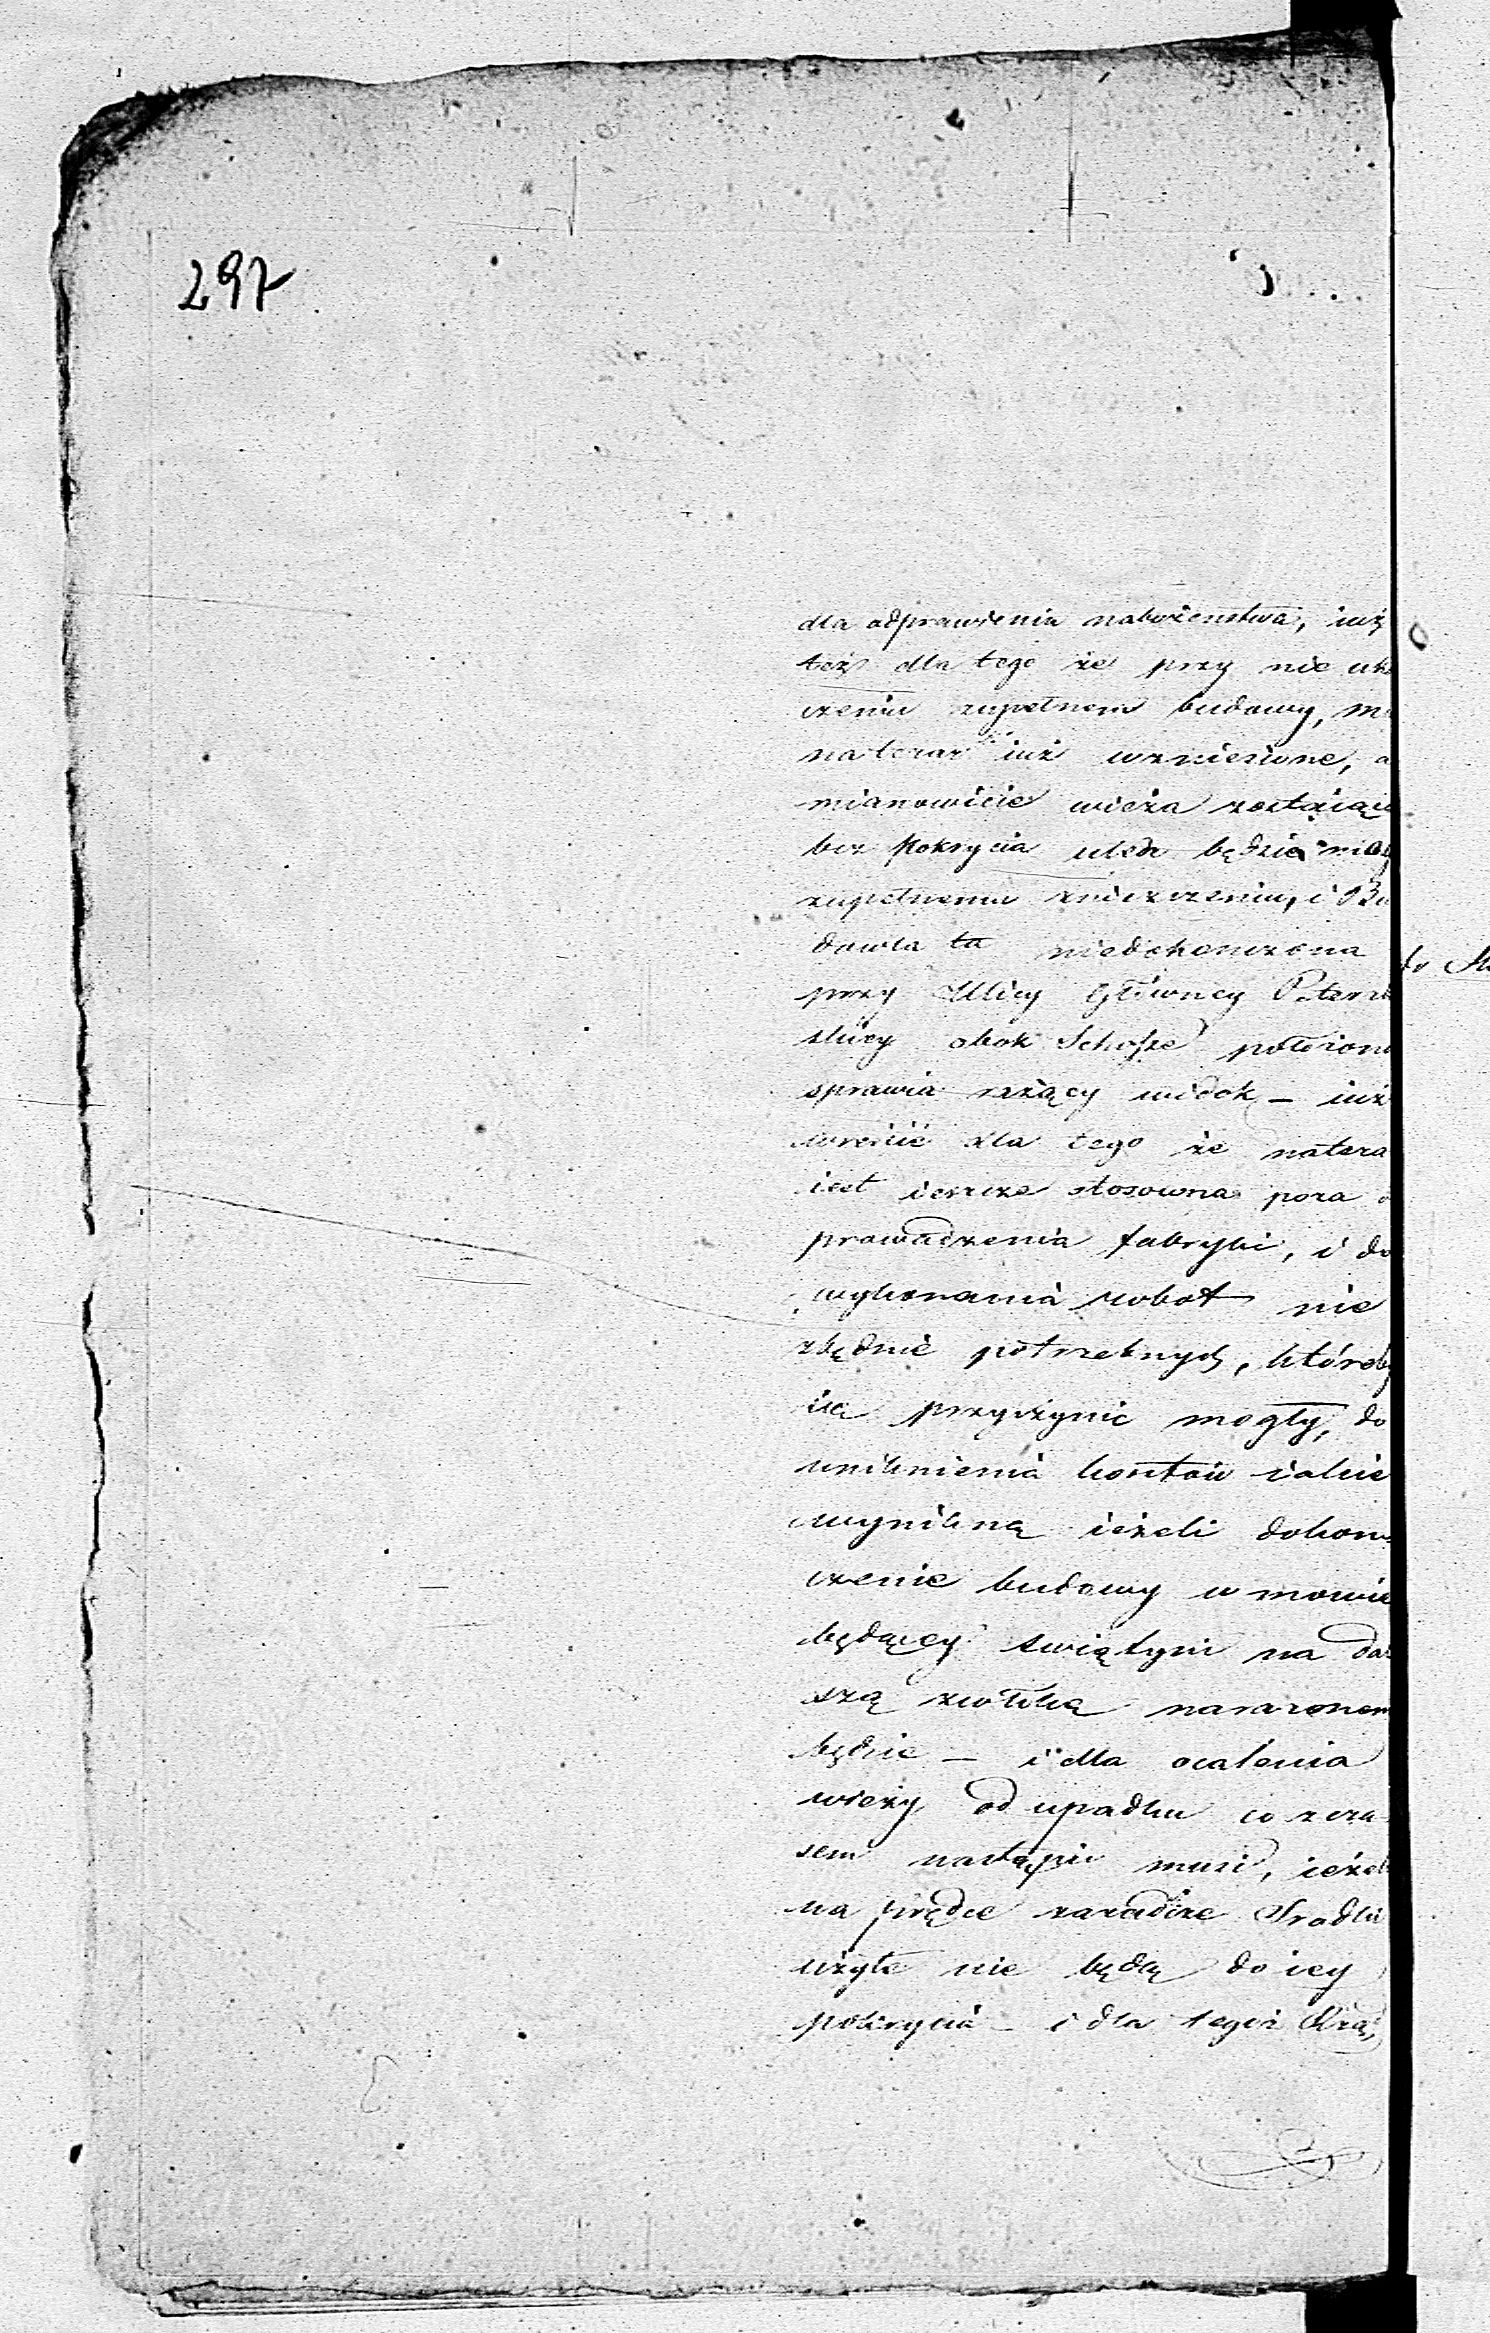 297
dla odprawienia nabożeństwa, iuż
też dla tego że przy nie uko
czeniu zupełnem budowy, m
na teraz iuż wzniesione, a
mianowicie wieża zostaiąc
bez pokrycia uledz będzie mog
zupełnemu zniszczeniu, i Bu
dowla ta niedokonczona
przy Ulicy Główney Peters
obok położon
sprawia rażący widok – iuż
wreście dla tego że natera
iest ieszcze stosowna pora
prowadzenia fabryki, i do
wykonania robot nie
zbędnie potrzebnych, któreby
się przyczynic mogły, do
uniknienia kosztow iakie
wynikną ieżeli dokon
czenie budowy w mowie
będącey swiątyni na dal
szą zwłokę narażonem
będzie – i dla ocalenia
wieży od upadku co cza
sem nastąpic musi, ieżeli
na prędce zaradcze Srodki
użyte nie będą do iey
pokrycia – i dla tegoż